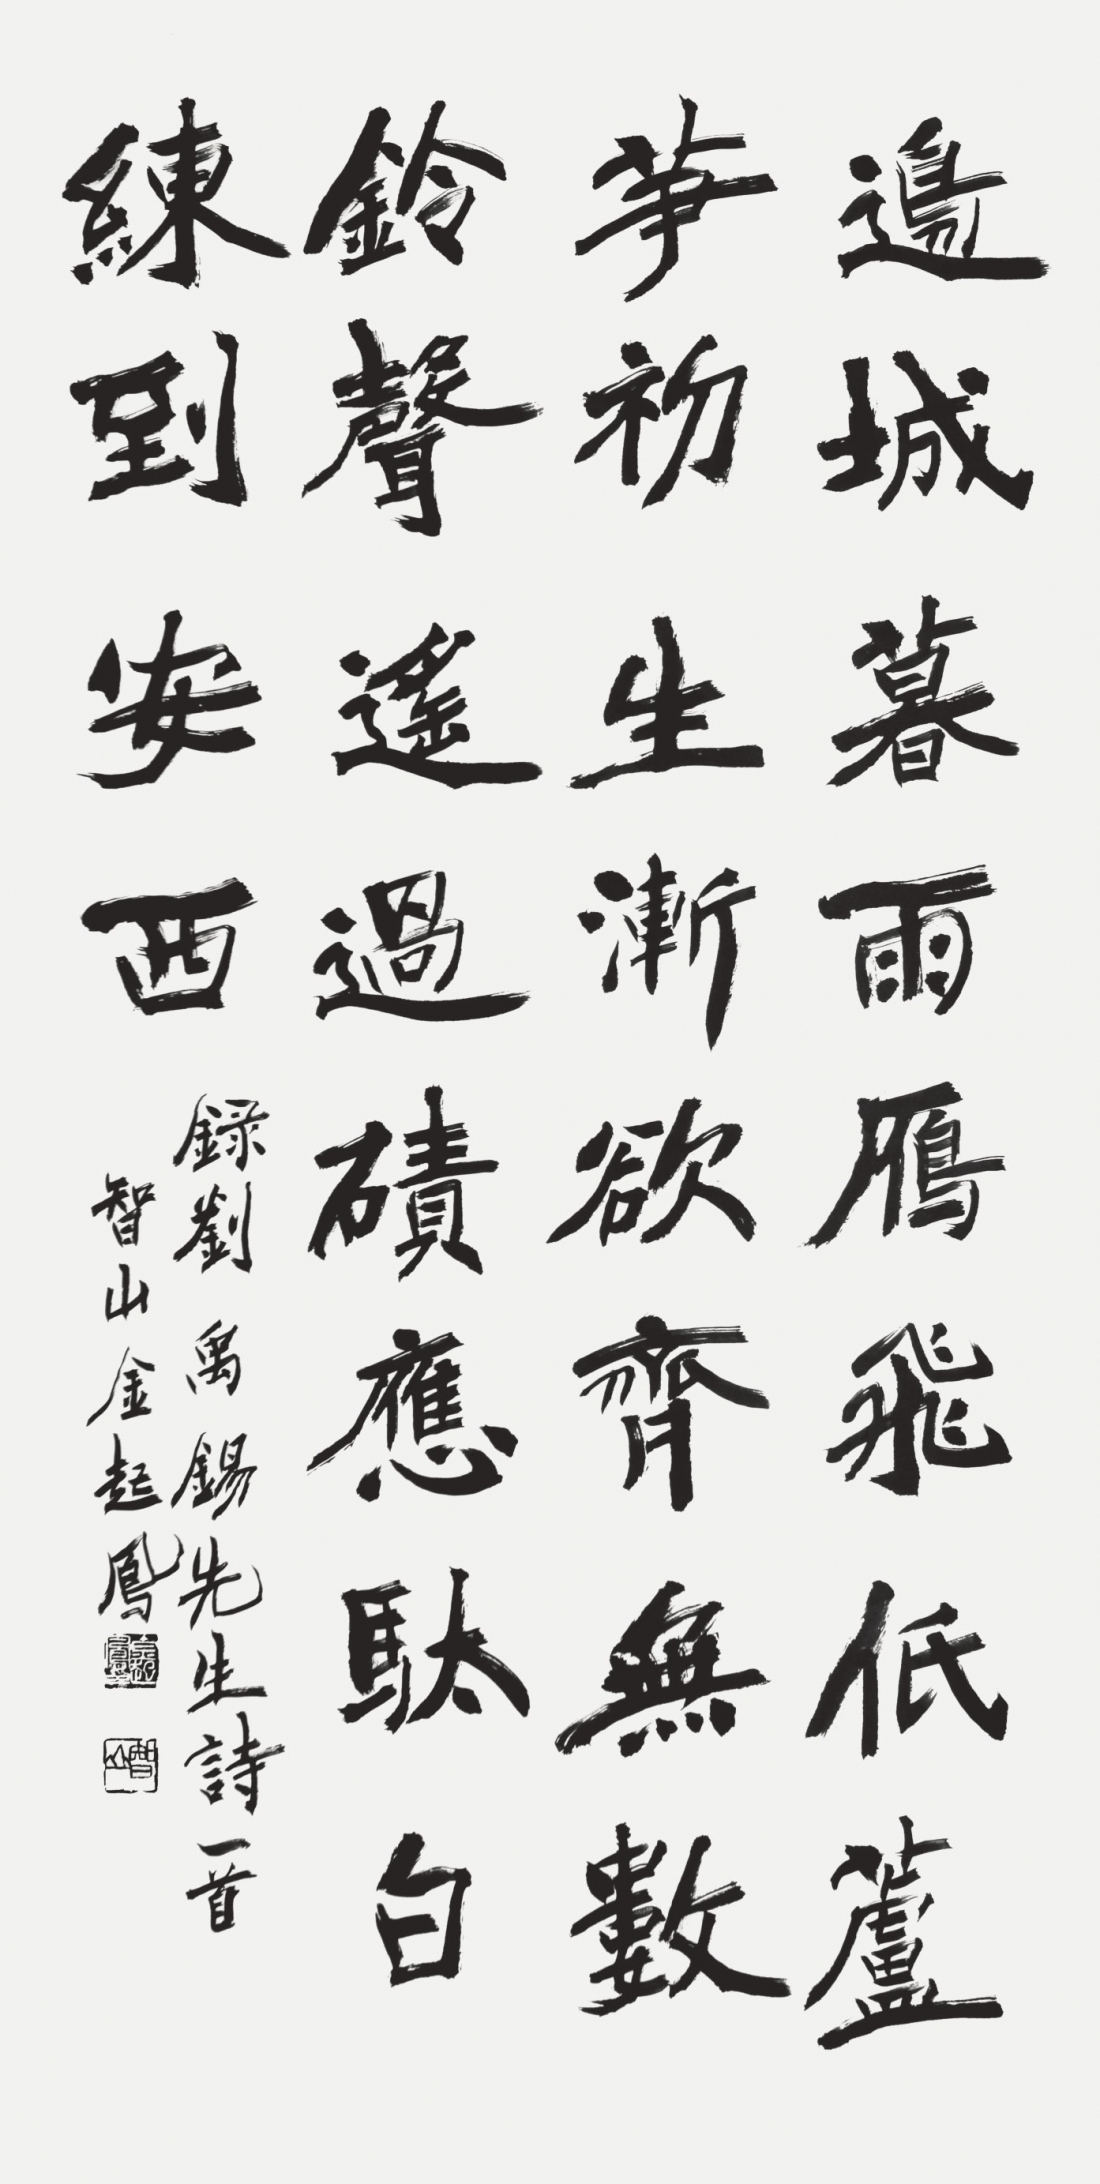 邊城暮雨雁飛低蘆
芽初生漸欲齊無數
鈴聲遙過磧應馱白
練到安西
錄劉禹錫先生詩一首
智山金起鳳